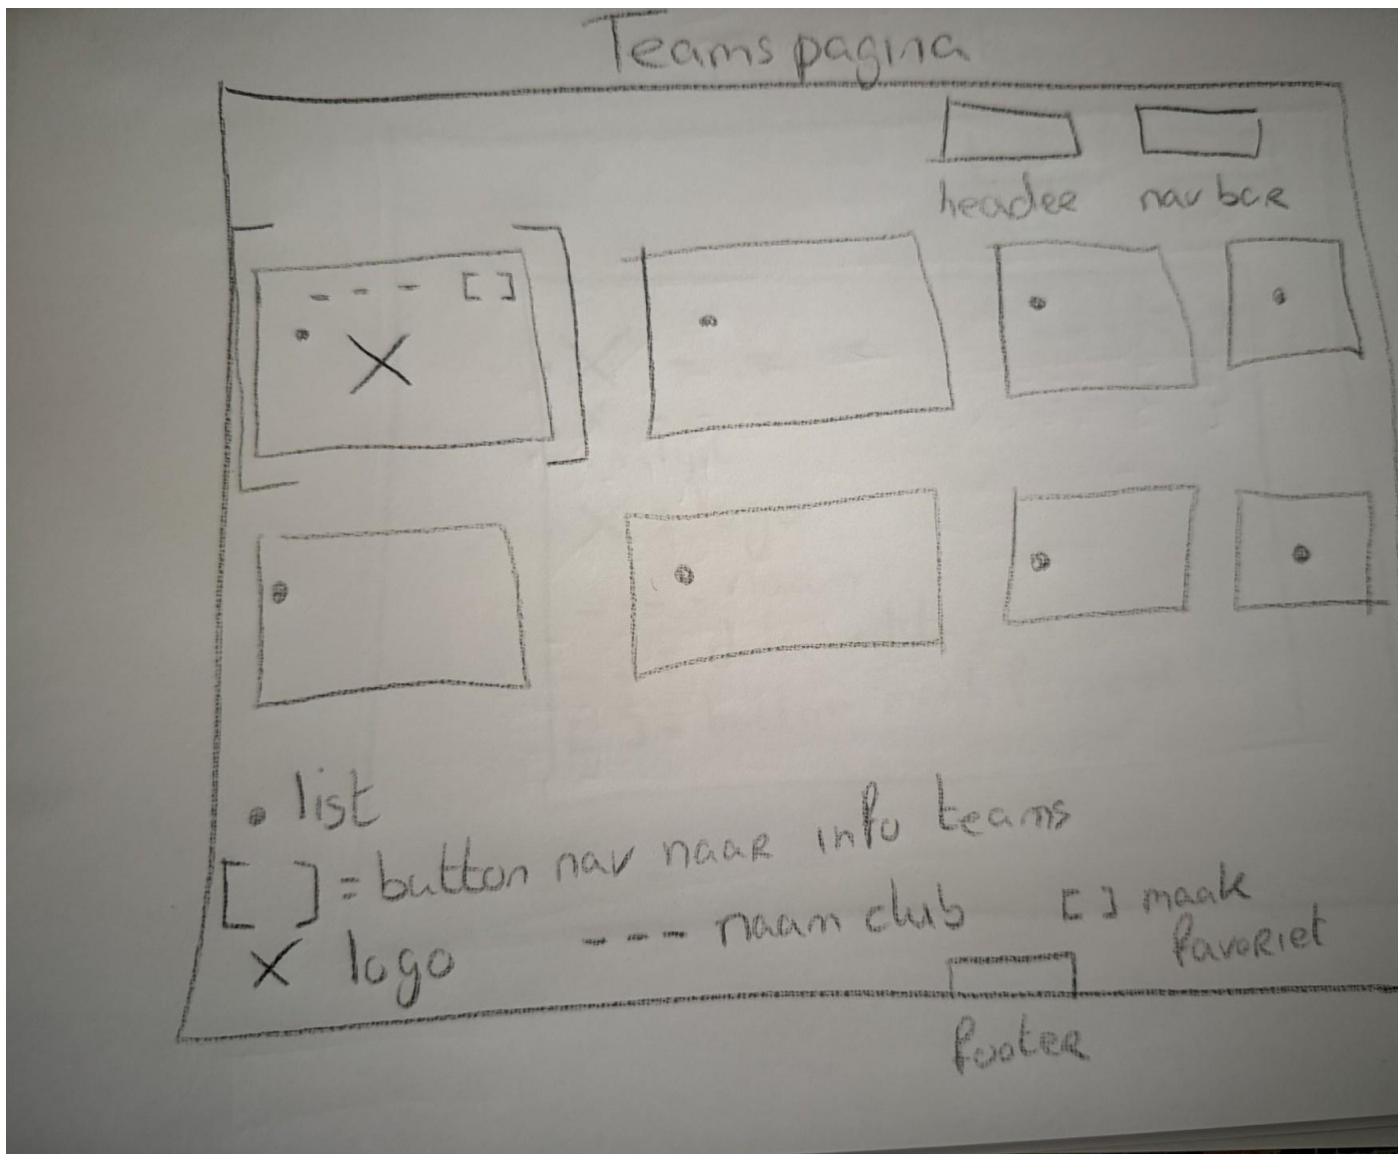 Teams pagina
header nav bar
- - - [ ]
X
• list
[ ] = button nav naar info teams
X logo - - - naam club [ ] maak favoriet
footer